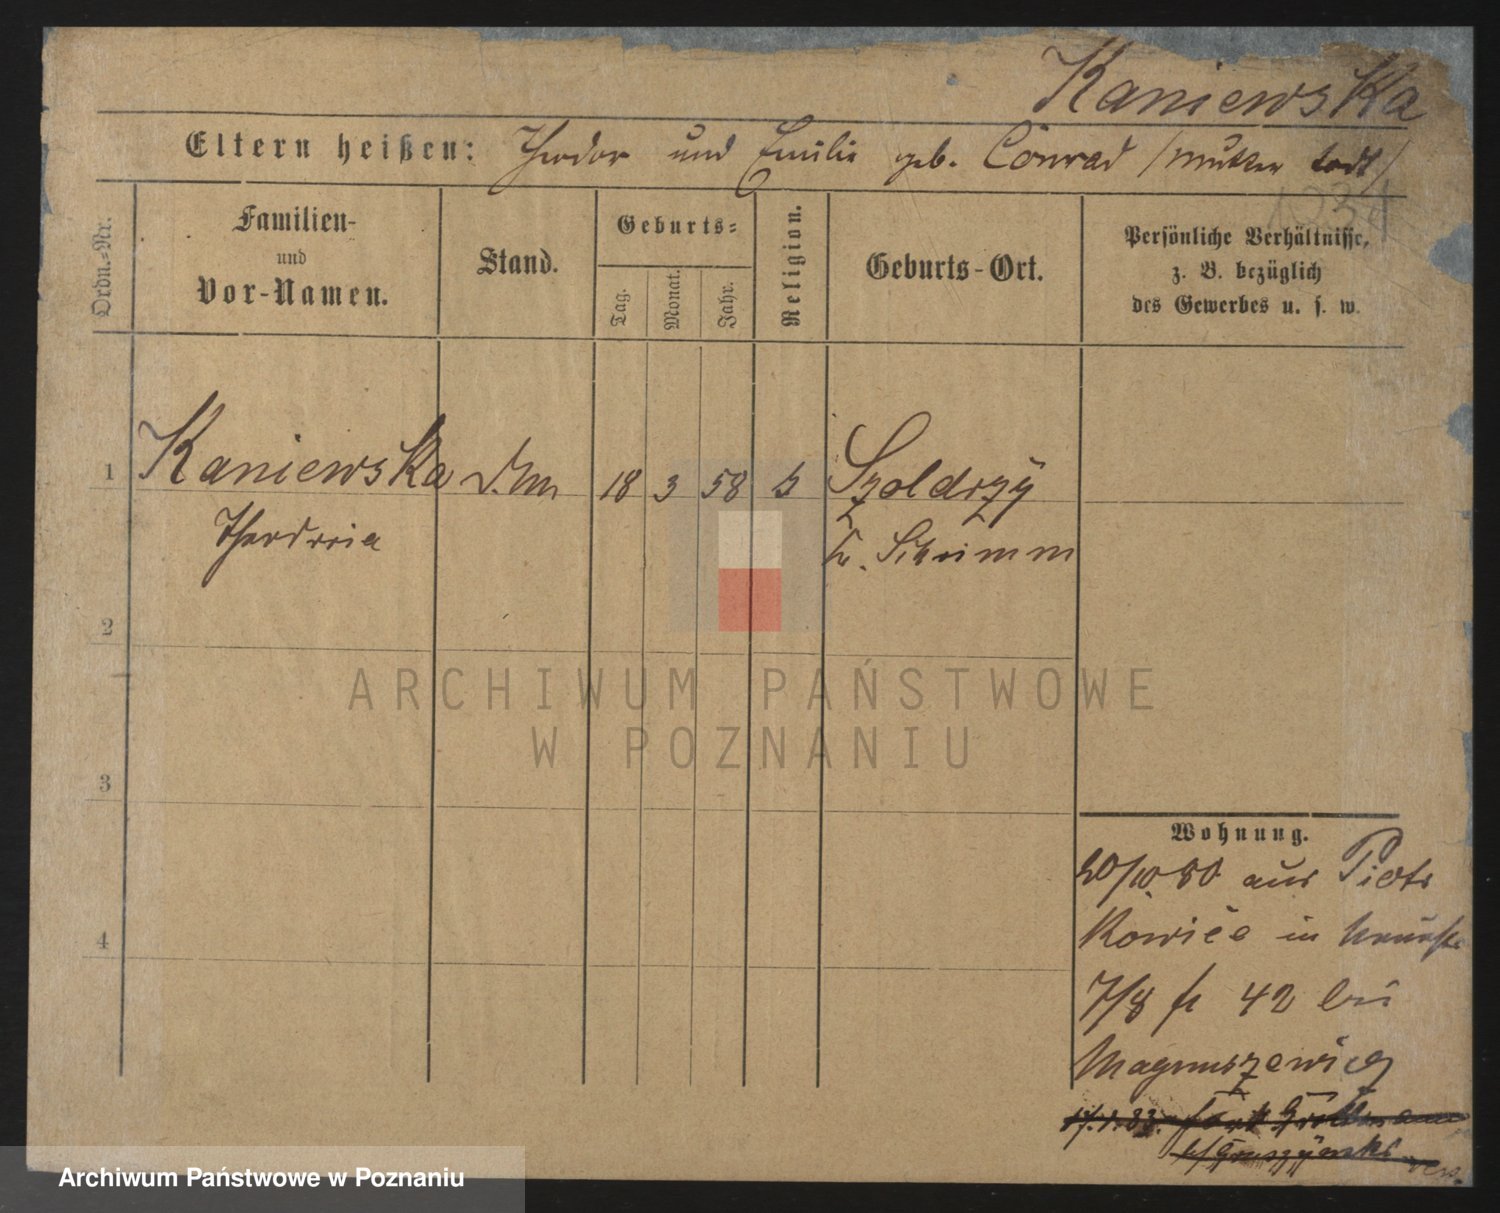 Kaniewska
Eltern heißen: Theodor und Emilie geb. Conrad /Mutter todt/
Ordn.-Nr.
Familien-
und
Vor-Namen.
Stand.
Geburts-
Tag.
Monat.
Jahr.
Religion.
Geburts-Ort.
Persönliche Verhältnisse,
z. B. bezüglich
des Gewerbes u. s. w.
1 Kaniewska 18 3 58 Szoldrzy
Schrimm
2
3
4
Wohnung.
20/10 80 aus Piotr
kowice in
7/8 42 bei
Magnuszewicz
17.1.83.
ARCHIWUM PAŃSTWOWE
W POZNANIU
Archiwum Państwowe w Poznaniu